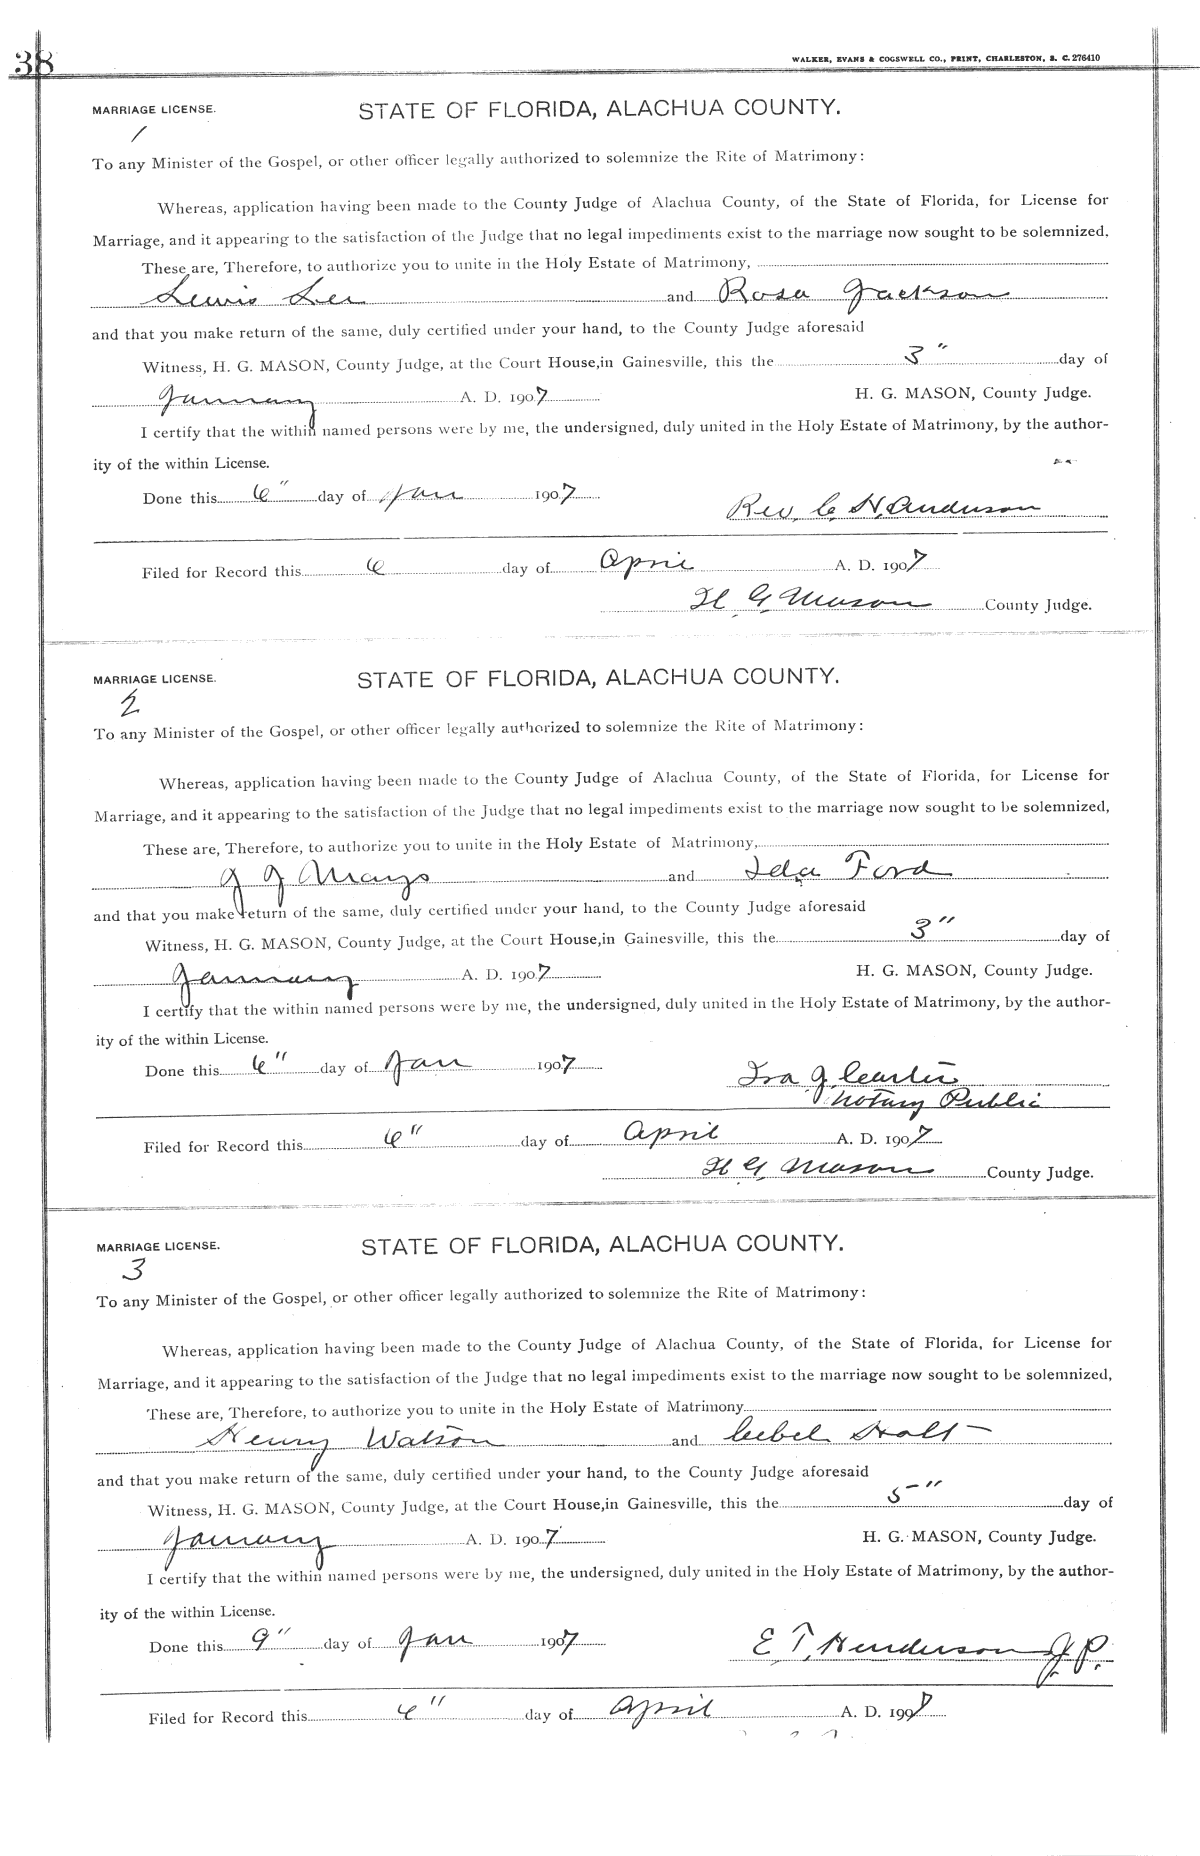 38
WALKER, EVANS & COGSWELL CO., PRINT, CHARLESTON, S. C. 276410
MARRIAGE LICENSE. STATE OF FLORIDA, ALACHUA COUNTY.
1
To any Minister of the Gospel, or other officer legally authorized to solemnize the Rite of Matrimony:
Whereas, application having been made to the County Judge of Alachua County, of the State of Florida, for License for
Marriage, and it appearing to the satisfaction of the Judge that no legal impediments exist to the marriage now sought to be solemnized.
These are, Therefore, to authorize you to unite in the Holy Estate of Matrimony,
Lewis Lee and Rosa Jackson
and that you make return of the same, duly certified under your hand, to the County Judge aforesaid
Witness, H. G. MASON, County Judge, at the Court House, in Gainesville, this the 3" day of
January A. D. 1907 H. G. MASON, County Judge.
I certify that the within named persons were by me, the undersigned, duly united in the Holy Estate of Matrimony, by the author-
ity of the within License.
Done this 6" day of Jan 1907
Rev. C. H. Anderson
Filed for Record this 6 day of April A. D. 1907
H G Mason County Judge.
MARRIAGE LICENSE. STATE OF FLORIDA, ALACHUA COUNTY.
2
To any Minister of the Gospel, or other officer legally authorized to solemnize the Rite of Matrimony:
Whereas, application having been made to the County Judge of Alachua County, of the State of Florida, for License for
Marriage, and it appearing to the satisfaction of the Judge that no legal impediments exist to the marriage now sought to be solemnized,
These are, Therefore, to authorize you to unite in the Holy Estate of Matrimony,
J J Mays and Ida Ford
and that you make return of the same, duly certified under your hand, to the County Judge aforesaid
Witness, H. G. MASON, County Judge, at the Court House, in Gainesville, this the 3" day of
January A. D. 1907 H. G. MASON, County Judge.
I certify that the within named persons were by me, the undersigned, duly united in the Holy Estate of Matrimony, by the author-
ity of the within License.
Done this 6" day of Jan 1907
Ira J. Carter
Notary Public
Filed for Record this 6" day of April A. D. 1907
H G Mason County Judge.
MARRIAGE LICENSE. STATE OF FLORIDA, ALACHUA COUNTY.
3
To any Minister of the Gospel, or other officer legally authorized to solemnize the Rite of Matrimony:
Whereas, application having been made to the County Judge of Alachua County, of the State of Florida, for License for
Marriage, and it appearing to the satisfaction of the Judge that no legal impediments exist to the marriage now sought to be solemnized,
These are, Therefore, to authorize you to unite in the Holy Estate of Matrimony
Henry Watson and Holt
and that you make return of the same, duly certified under your hand, to the County Judge aforesaid
Witness, H. G. MASON, County Judge, at the Court House, in Gainesville, this the 5" day of
January A. D. 1907 H. G. MASON, County Judge.
I certify that the within named persons were by me, the undersigned, duly united in the Holy Estate of Matrimony, by the author-
ity of the within License.
Done this 9" day of Jan 1907
E. T. Henderson J. P.
Filed for Record this 6" day of April A. D. 1907